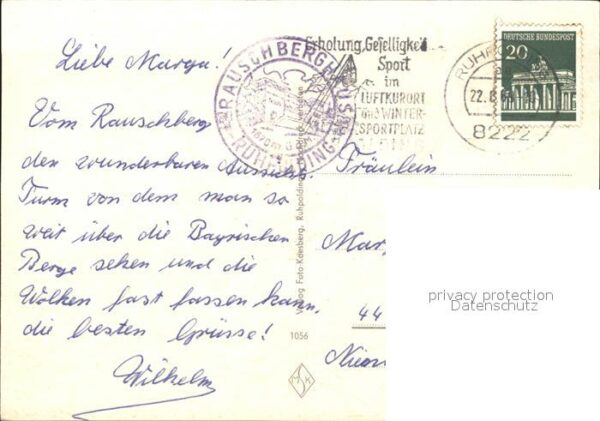 Liebe Marga!
Vom Rauschberg
den wunderbaren Aussichts
Turm von dem man so
weit über die Bayrischen
Berge sehen und die
Wolken fast fassen kann,
die besten Grüsse!
Wilhelm
RAUSCHBERGHAUS
RUHPOLDING
Erholung, Geselligkei
Sport
im
LUFTKURORT
UND WINTER-
SPORTPLATZ
22.8.
8222
DEUTSCHE BUNDESPOST
20
Verlag Foto-Kaesberg, Ruhpolding
1056
Fräulein
Mar
44
privacy protection
Datenschutz